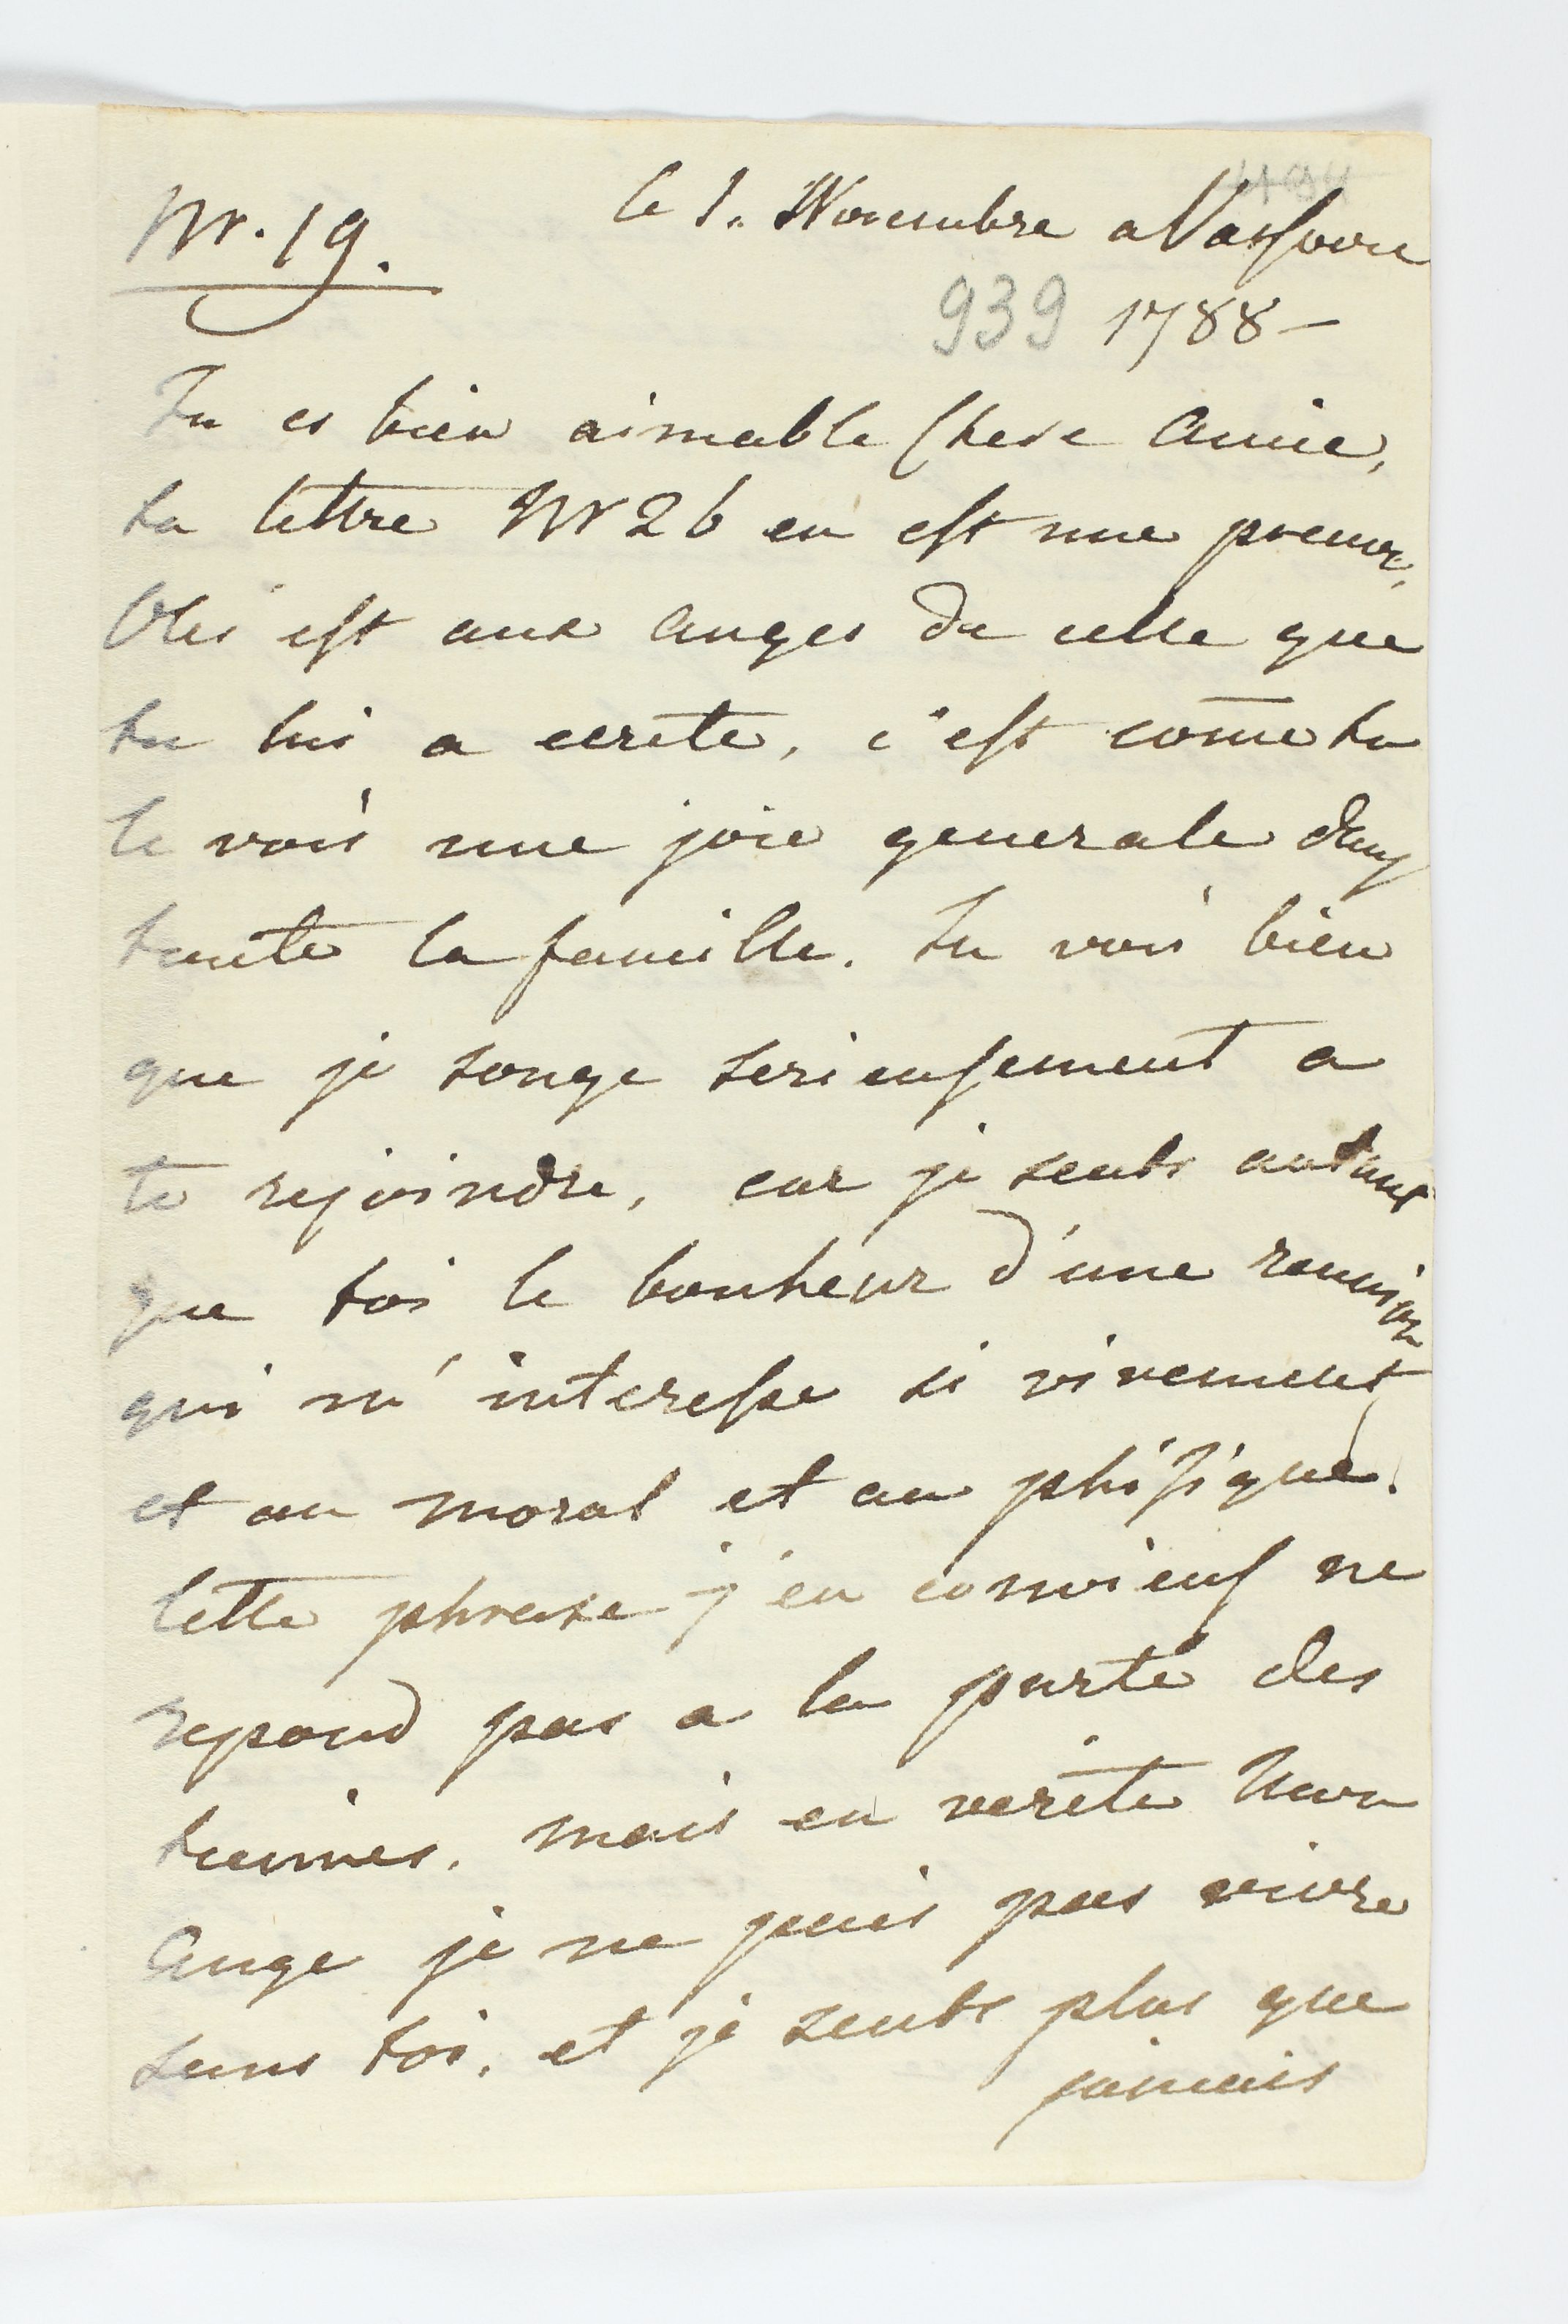 Nr. 19. le 1. Novembre a Varsovie
939 1788 –
Tu es bien aimable Chere Amie,
ta lettre Nr 26 en est une preuve,
est aux Anges de celle que
tu lui a ecrite, c'est come tu
le vois une joie generale dans
toute la famille. Tu vois bien
que je songe serieusement a
te rejoindre, car je sents autant
que toi le bonheur d'une reunion
qui m'interesse si vivement
et au moral et au phisique.
Cette phrase j'en conviens ne
repond pas a la purté des
tiennes, mais en verité Mon
Ange je ne puis pas vivre
sans toi, et je sents plus que
jamais